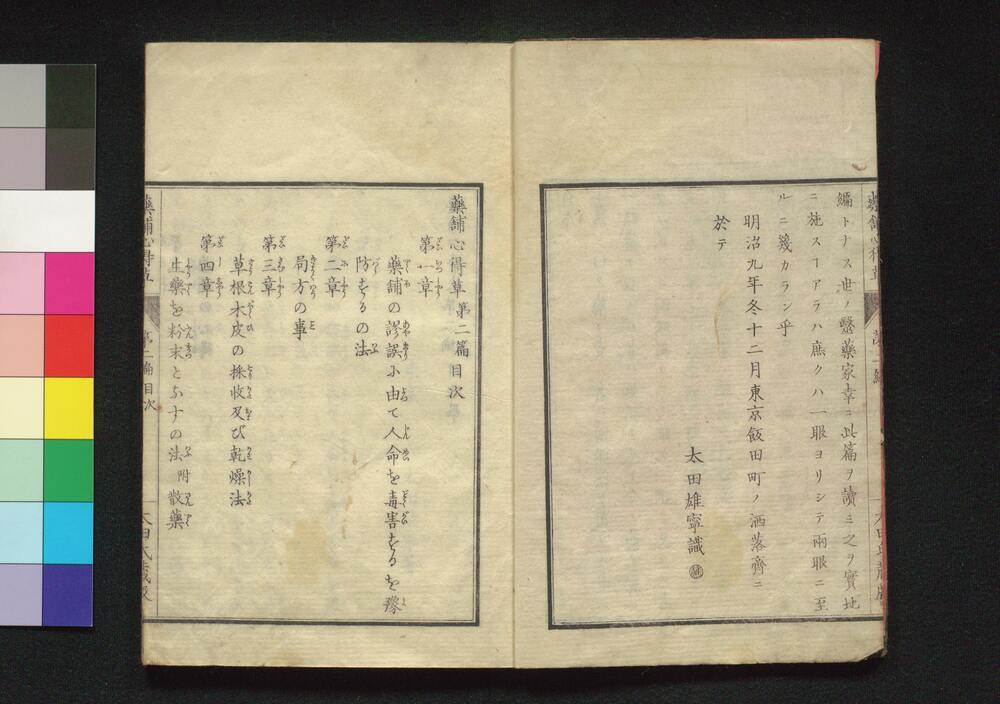 編トナス世ノ醫藥家幸ニ此篇ヲ讀ミ之ヲ實地
ニ施スヿアラハ庶クハ一眼ヨリシテ兩眼ニ至
ルニ幾カラン乎
明治九年冬十二月東京飯田町ノ洒落齊ニ
於テ
太田雄寧識
藥舗心得草第二篇目次
第一章
藥舗の謬誤に由て人命を毒害するを豫
防するの法
第二章
局方の事
第三章
草根木皮の採收及び乾燥法
第四章
生藥を粉末となすの法 附散藥
藥舗心得草 第二篇目次 太田氏蔵版